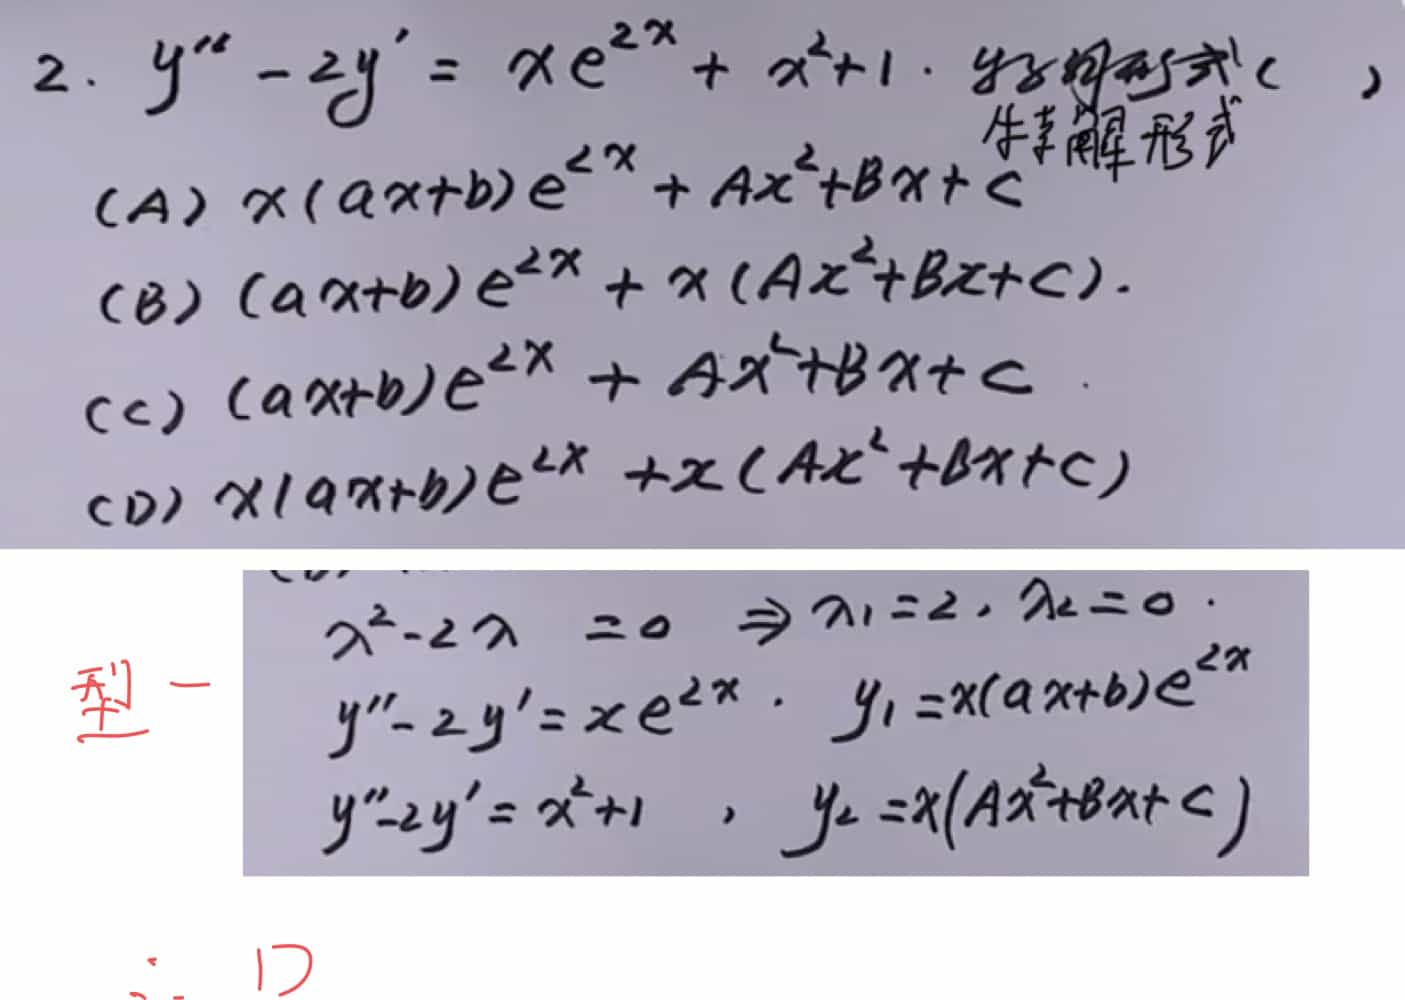 2. y″ - 2y′ = xe^{2x} + x²+1. ( )
特解形式
(A) x(ax+b)e^{2x} + Ax²+Bx+C
(B) (ax+b)e^{2x} + x(Ax²+Bx+C).
(C) (ax+b)e^{2x} + Ax²+Bx+C.
(D) x(ax+b)e^{2x} +x(Ax²+Bx+C)
λ²-2λ =0 ⇒ λ₁=2, λ₂=0.
型一
y″-2y′=xe^{2x}. y₁=x(ax+b)e^{2x}
y″-2y′=x²+1, y₂=x(Ax²+Bx+C)
∴ D